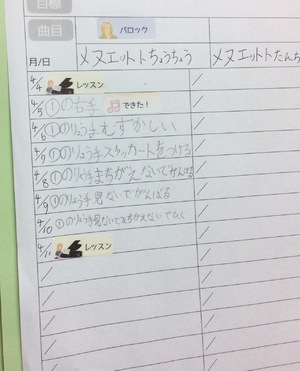 目標
曲目
バロック
月/日
メヌエットトちょうちょう
メヌエットトたんち
4/4 レッスン
4/5 ①の右手 できた!
4/6 ①のりょうまむずかしい
4/7 ①のりょう手スタッカートをつける
4/8 ①のりょ手まちがえないでがんばる
4/9 ①のりょう手見ないでがんばる
4/10 ①のりょう手見ないでまちがえないでひく
4/11 レッスン